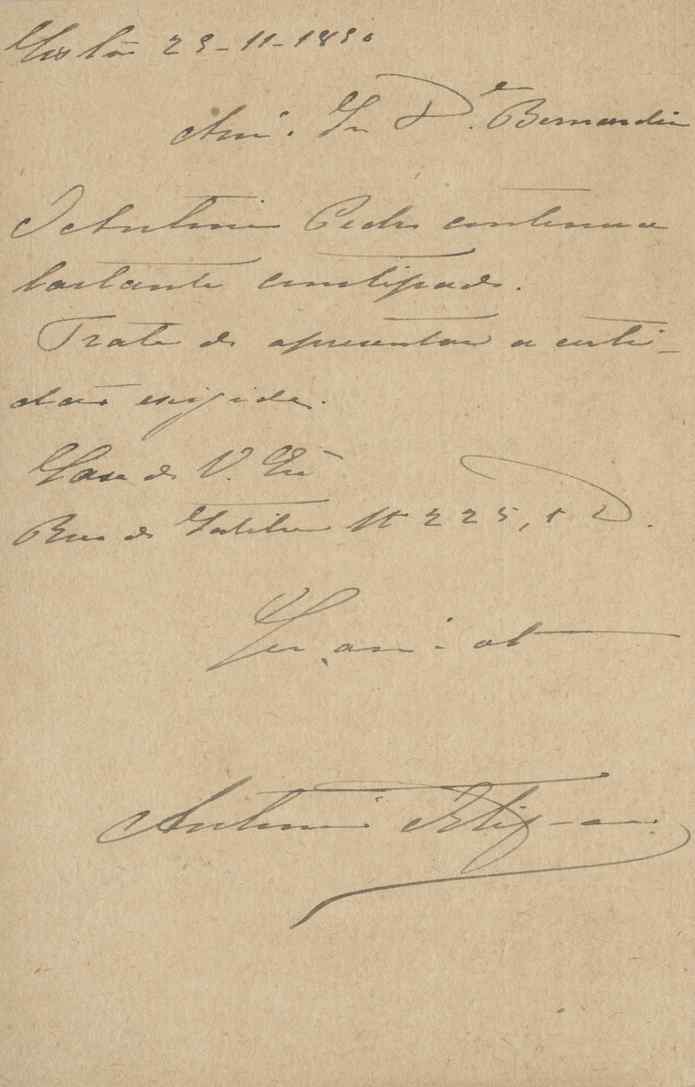 Lisbôa 29-11-1890
Am.º Sr. D.r Bernardin
O Antonio Pedro continua
bastante constipado.
Trate de apresentar a certi-
dão exigida.
Casa de V. Ex.
Rua de
225, 1º D.
am.º ob
Antonio